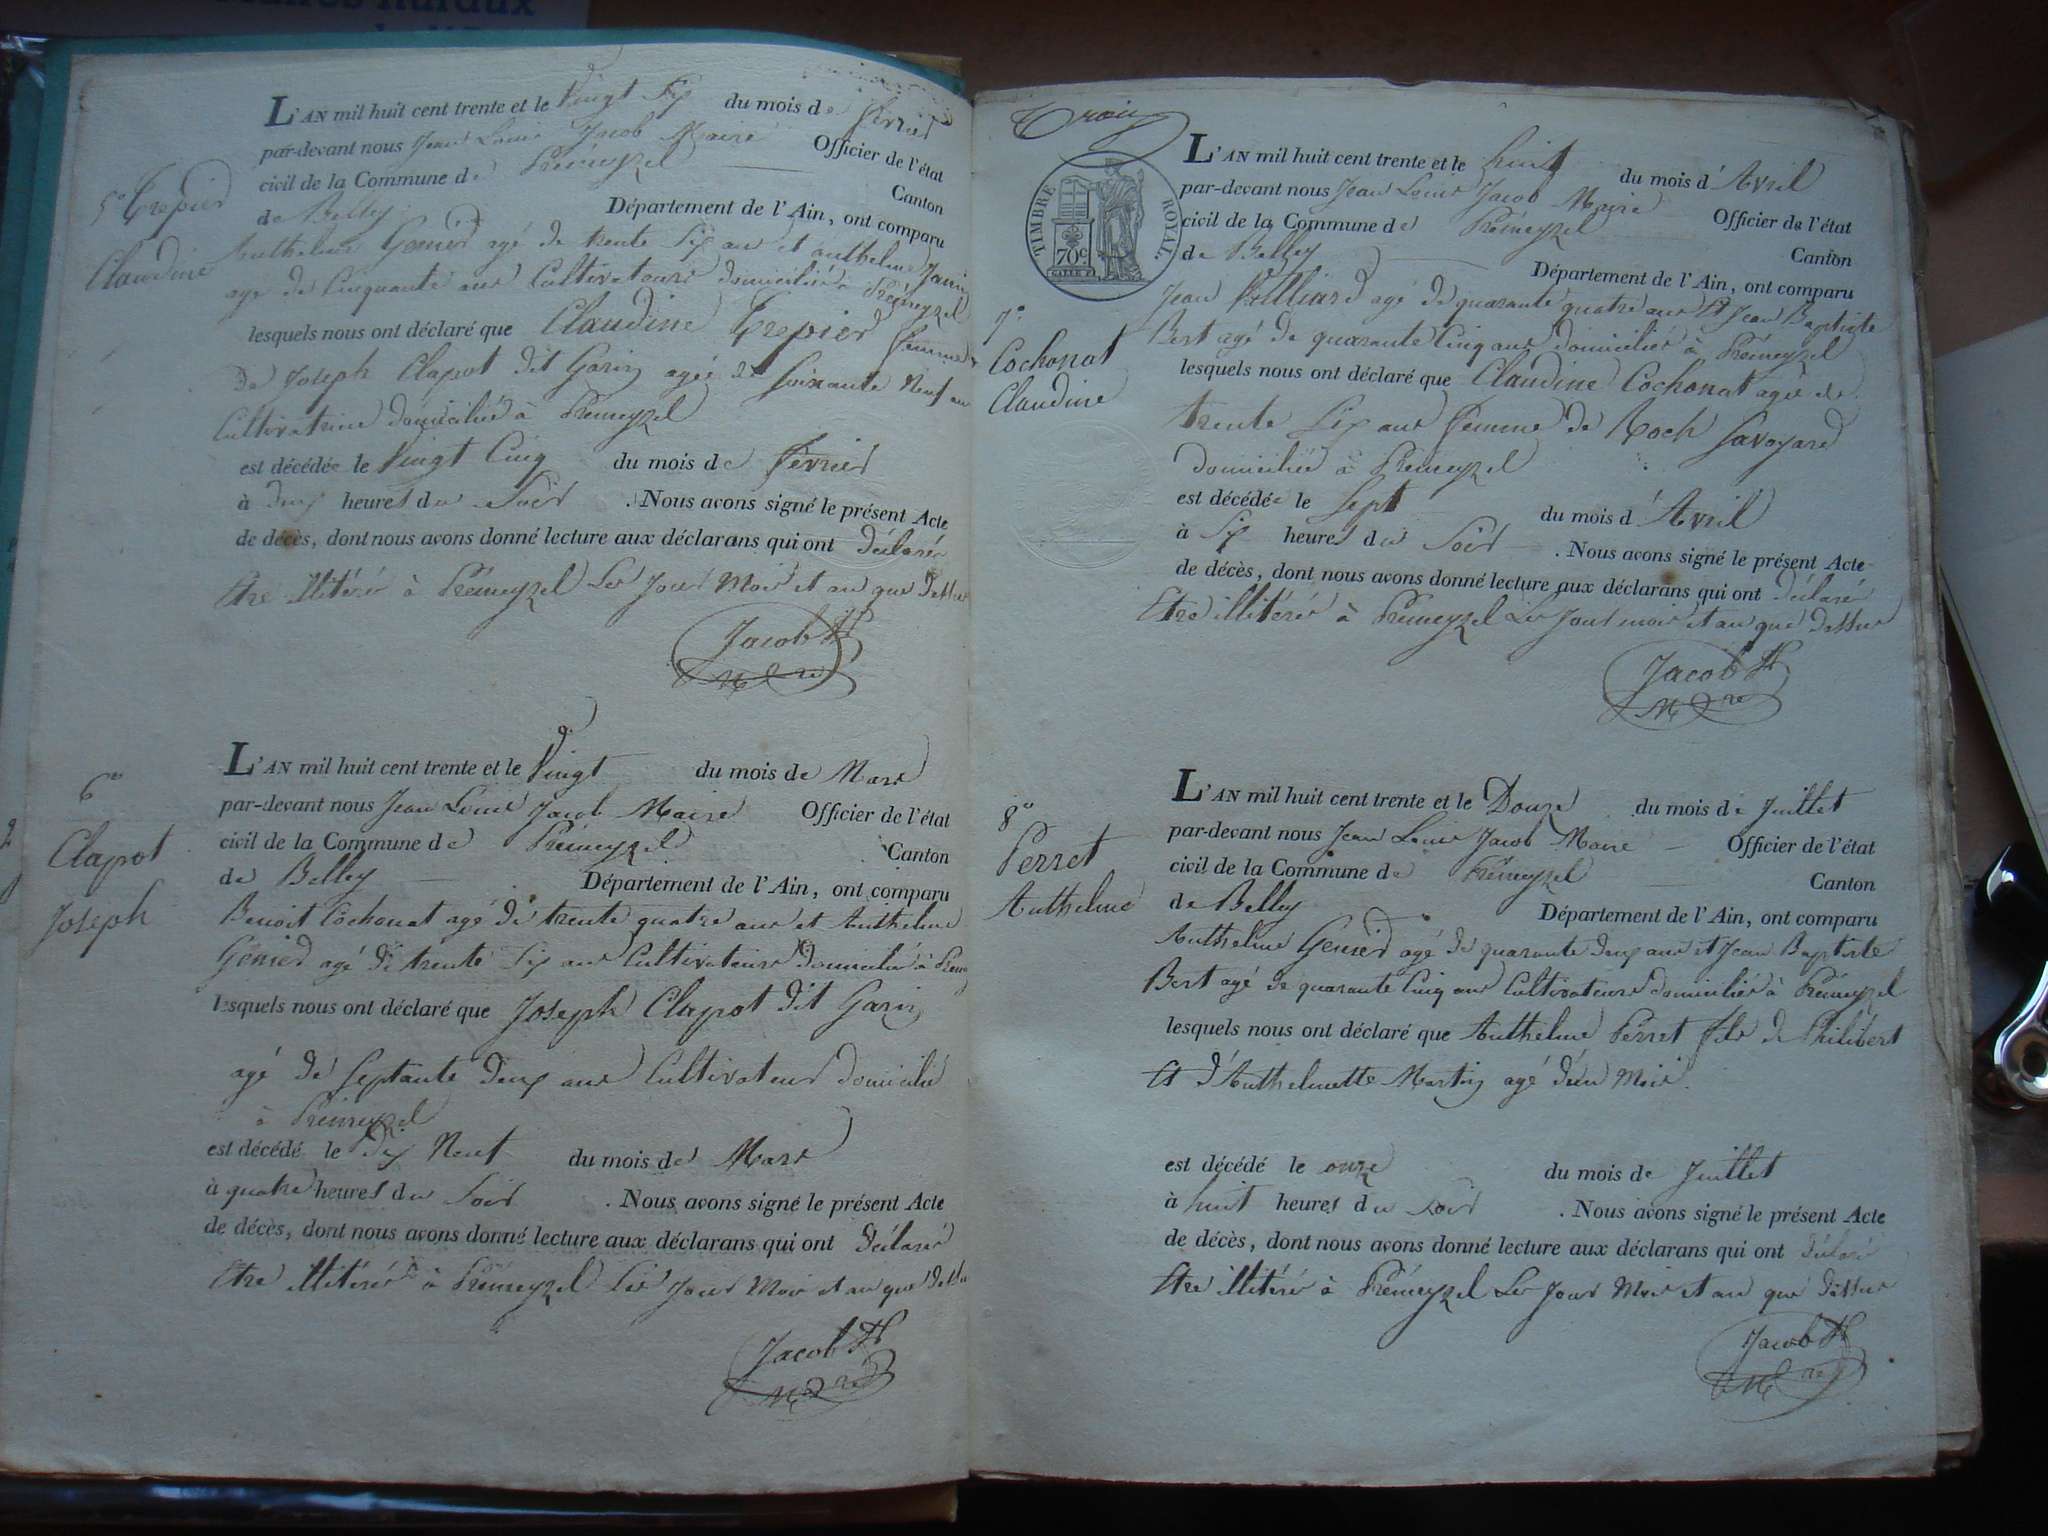 L'AN mil huit cent trente et le Vingt Six du mois de fevrier
par-devant nous Jean Louis Jacob Maire Officier de l'état
civil de la Commune de Prémeyzel Canton
de Belley Département de l'Ain, ont comparu
5º Trepier
Claudine
Anthelme Genier agé de trente Six ans et anthelme Janin
age de Cinquante ans Cultivateurs domiciliés à Prémeyzel
lesquels nous ont déclaré que Claudine Trepier femme
de Joseph Clapot dit Garin agée de Soixante Neuf ans
Cultivatrice domiciliée à Prémeyzel
est décédée le Vingt Cinq du mois de fevrier
à deux heures du Soir . Nous avons signé le présent Acte
de décès, dont nous avons donné lecture aux déclarans qui ont déclarés
Etre illitérés à Prémeyzel Les Jour Mois et an que dessus
Jacob
Mre
6º
Clapot
Joseph
L'AN mil huit cent trente et le Vingt du mois de Mars
par-devant nous Jean Louis Jacob Maire Officier de l'état
civil de la Commune de Prémeyzel Canton
de Belley Département de l'Ain, ont comparu
Benoit Cochonat agé de trente quatre ans et Anthelme
Genier agé de trente Six ans Cultivateurs domicilié à
lesquels nous ont déclaré que Joseph Clapot dit Garin
agé de Septante deux ans Cultivateur domicilié
à Prémeyzel
est décédé le dix Neuf du mois de Mars
à quatre heures du Soir . Nous avons signé le présent Acte
de décès, dont nous avons donné lecture aux déclarans qui ont déclarés
Etre illitérés à Prémeyzel Les Jour Mois et an que dessus
Jacob
Mre
Trois
TIMBRE ROYAL
70c
L'AN mil huit cent trente et le huit du mois d'Avril
par-devant nous Jean Louis Jacob Maire Officier de l'état
civil de la Commune de Prémeyzel Canton
de Belley Département de l'Ain, ont comparu
7º
Cochonat
Claudine
Jean agé de quarante quatre ans et Jean Baptiste
Bert agé de quarante Cinq ans domiciliés à Prémeyzel
lesquels nous ont déclaré que Claudine Cochonat agée de
trente Six ans femme de Roch Savoyard
domiciliée à Prémeyzel
est décédée le Sept du mois d'Avril
à Six heures du Soir . Nous avons signé le présent Acte
de décès, dont nous avons donné lecture aux déclarans qui ont déclaré
Etre illitérés à Prémeyzel Les Jour mois et an que dessus
Jacob
Mre
8º
Perret
Anthelme
L'AN mil huit cent trente et le Douze du mois de Juillet
par-devant nous Jean Louis Jacob Maire Officier de l'état
civil de la Commune de Prémeyzel Canton
de Belley Département de l'Ain, ont comparu
Anthelme Génier agé de quarante deux ans et Jean Baptiste
Bert agé de quarante Cinq ans Cultivateurs domiciliés à Prémeyzel
lesquels nous ont déclaré que Anthelme Perret fils de Philibert
Et d'Anthelmette Martin agé d'un Mois.
est décédé le onze du mois de Juillet
à huit heures du soir . Nous avons signé le présent Acte
de décès, dont nous avons donné lecture aux déclarans qui ont déclaré
Etre illitérés à Prémeyzel Les Jour Mois et an que dessus
Jacob
Mre